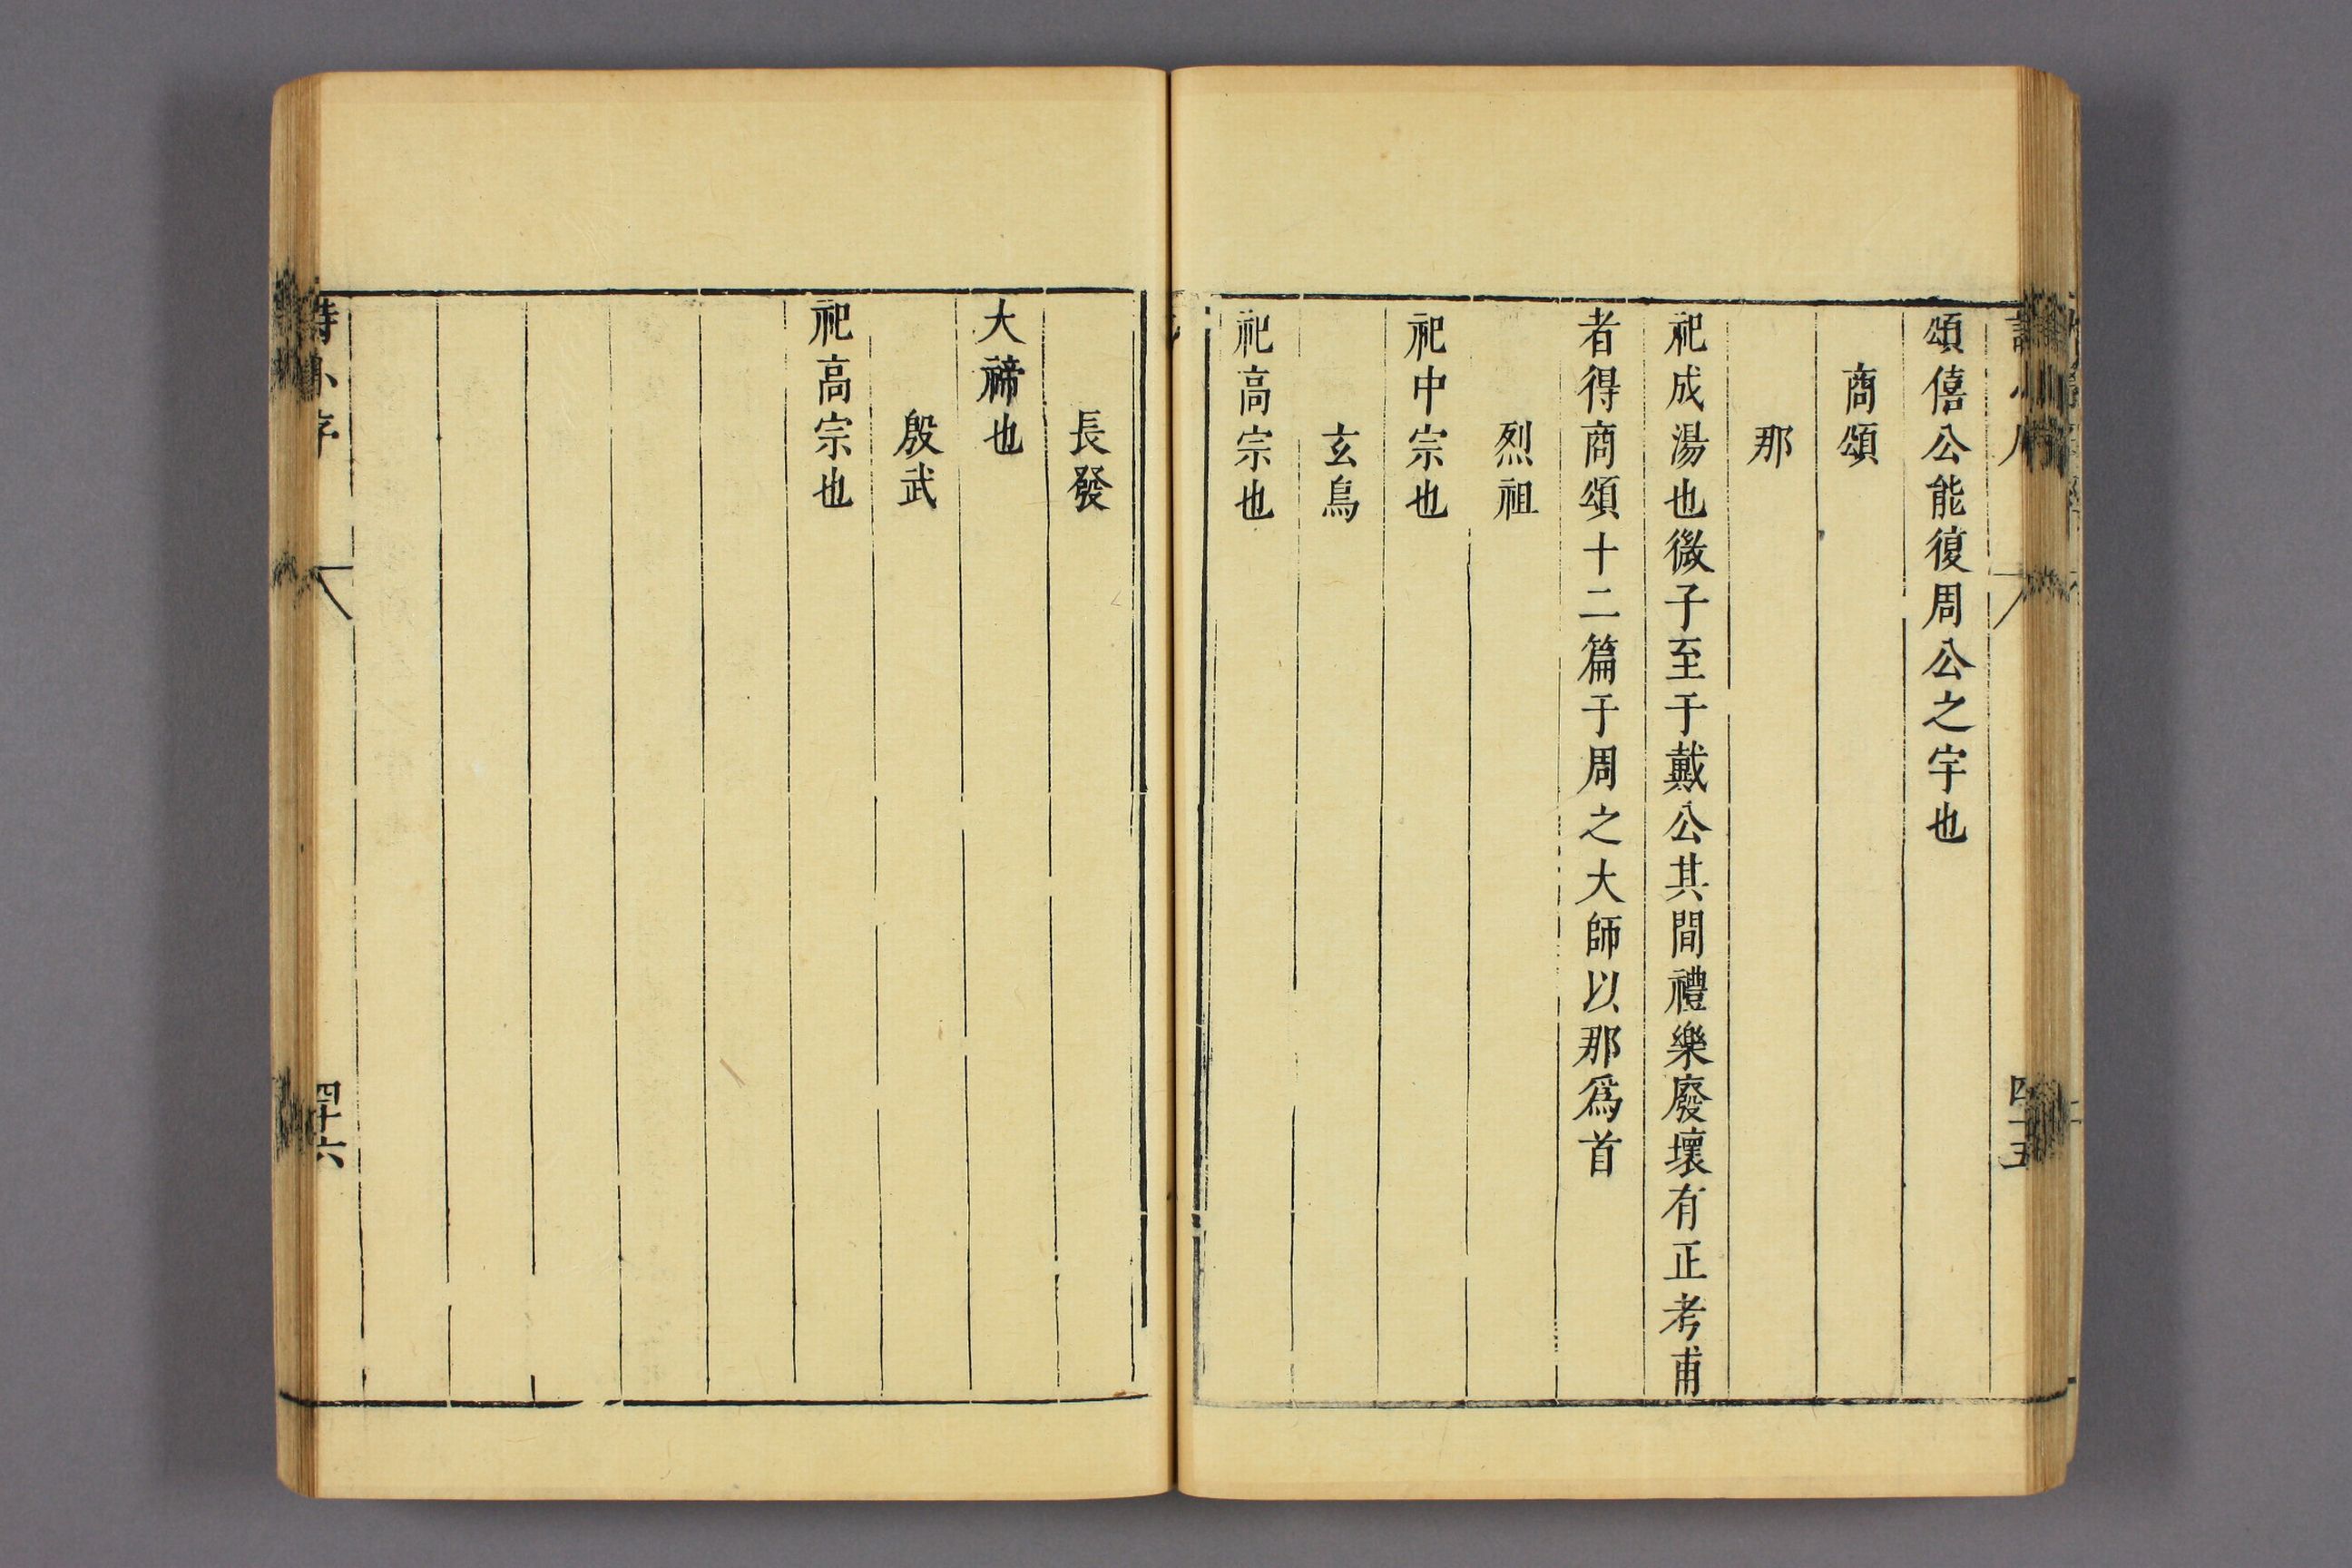 頌僖公能復周公之宇也
商頌
那
祀成湯也微子至于戴公其間禮樂廢壞有正考甫
者得商頌十二篇于周之大師以那爲首
烈祖
祀中宗也
玄鳥
祀高宗也
長發
大禘也
殷武
祀高宗也
詩小序
四十六